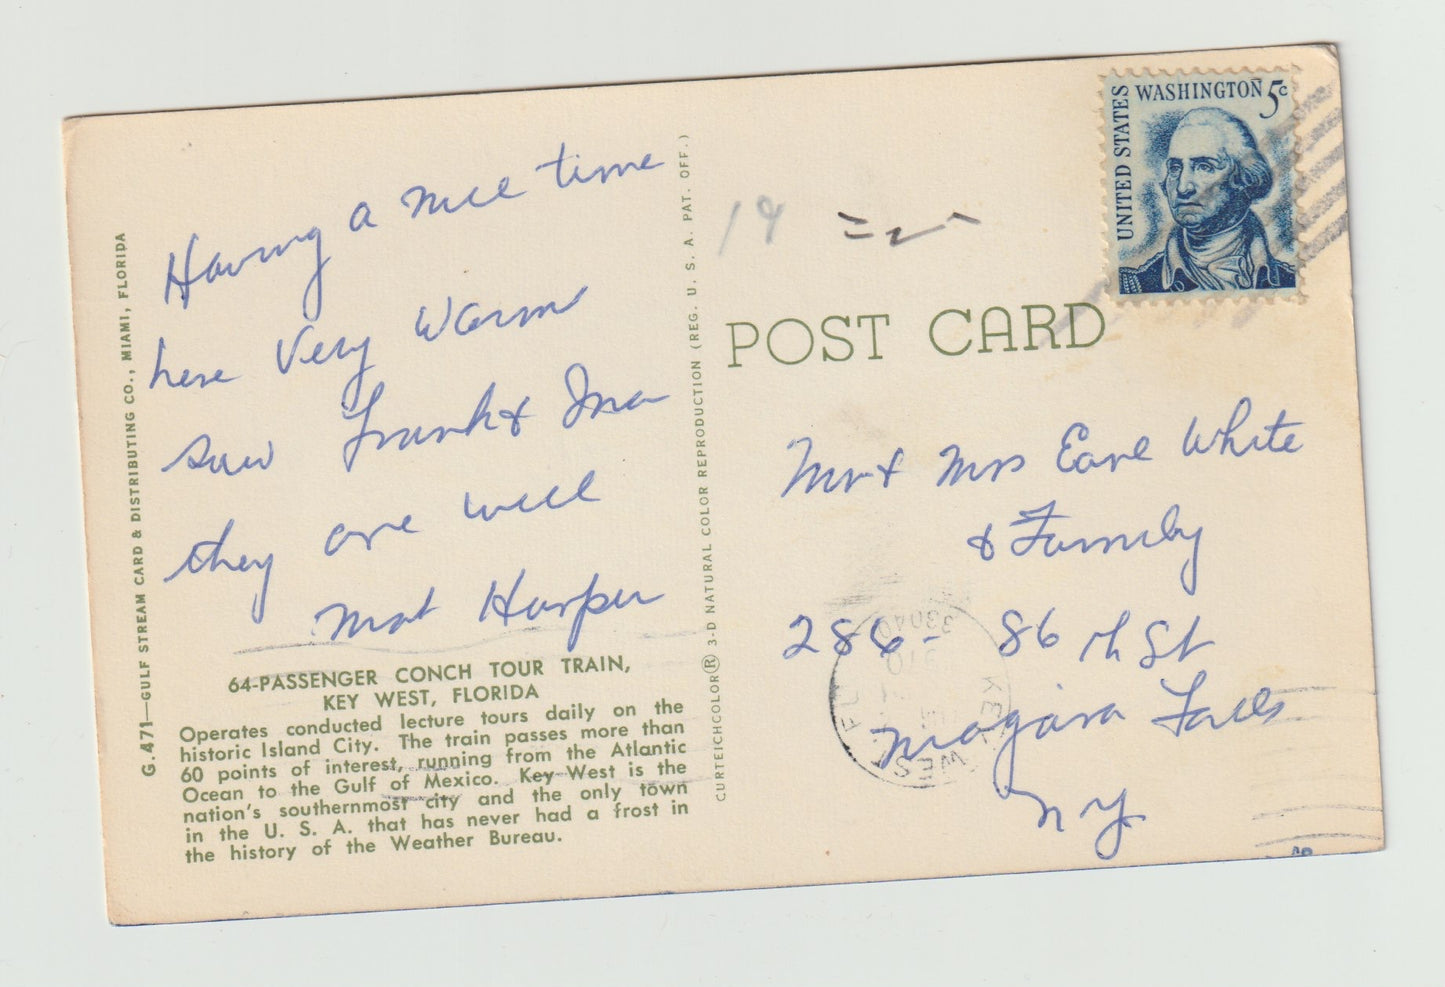 Having a nice time
here Very Warm
saw Frank & Ina
they are well
Mat Harper
64-PASSENGER CONCH TOUR TRAIN,
KEY WEST, FLORIDA
Operates conducted lecture tours daily on the
historic Island City. The train passes more than
60 points of interest, running from the Atlantic
Ocean to the Gulf of Mexico. Key West is the
nation's southernmost city and the only town
in the U. S. A. that has never had a frost in
the history of the Weather Bureau.
G.471—GULF STREAM CARD & DISTRIBUTING CO., MIAMI, FLORIDA
CURTEICHCOLOR® 3-D NATURAL COLOR REPRODUCTION (REG. U. S. A. PAT. OFF.)
19
UNITED STATES
WASHINGTON 5c
POST CARD
Mr & Mrs Earl White
& Family
286- 86 th St
Niagara Falls
NY
KEY WEST, FL
33040